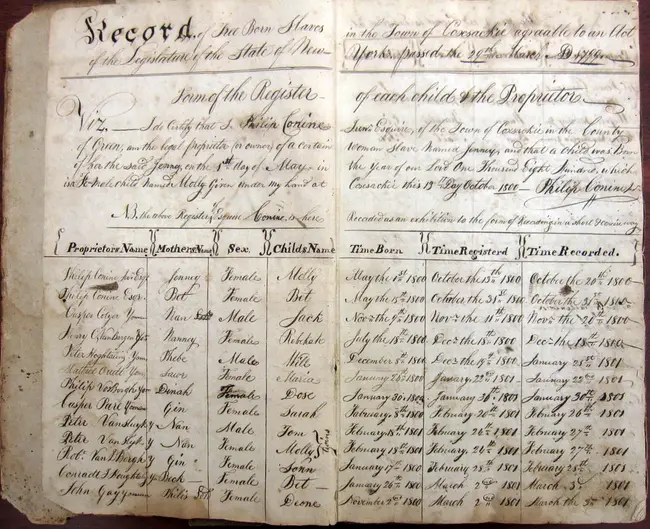 Record of Free Born Slaves in the Town of Coxsackie agreeable to an Act
of the Legislature of the State of New- York passed the 29th March AD 1799
Form of the Register of each child & the Proprietor
Viz. I do Certify that I Philip Conine Junr Esquire, of the Town of Coxsackie in the County
of Green, am the legal proprietor (or owner) of a certain Woman Slave Named Jenney, and that a Child was Born
of her the said Jenney, on the 1st day of May in the Year of our Lord One Thousand Eight Hundred, which
is a Female child Named Molly Given under my hand at Coxsackie this 13th Day October 1800 Philip Conine Jr
NB. the above Register of Esquire Conine, is here Recorded as an exhibition to the form of Recording in a short & concise way
Proprietors Name Mothers Name Sex. Childs Name Time Born Time Registerd Time Recorded.
Philip Conine Junr Esqr Jenney Female Molly May the 1st 1800 October the 13th 1800 October the 20th 1800
Philip Conine Esqr. Bet Female Bet May the 1800 October the 31st 1800 October the 31st 1800
Casper Yom Nan Male Jack Novr the 1800 Novr the 11th 1800 Novr the 1800
Henry Yom Nanney Female July the 18th 1800 Decr the 18th 1800 Decr the 18th 1800
Peter Yom Phebe Male December 1800 Decr the 1800 January 1801
Female Maria January 1801 January 22nd 1801 January 22nd 1801
Philip Yom Dinah Female Dose January 30 1801 January 1801 January 30th 1801
Casper Yom Gin Female Sarah February 1801 February 20th 1801 February 20th 1801
Peter Van Slyke Yom Nan Male Tom February 18th 1801 February 26th 1801 February 27th 1801
Peter Van Slyke Yom Nan Female Molly Twins February 18th 1801 February 26th 1801 February 27th 1801
Robt. Van D Bergh Yom Gin Female January 17th 1801 February 28th 1801 February 28th 1801
Conradt T Houghtaling Yom Beck Female Bet January 26th 1801 March 2nd 1801 March 3rd 1801
John Gay Yom Female Deone November 2nd 1800 March 2nd 1801 March the 3rd 1801